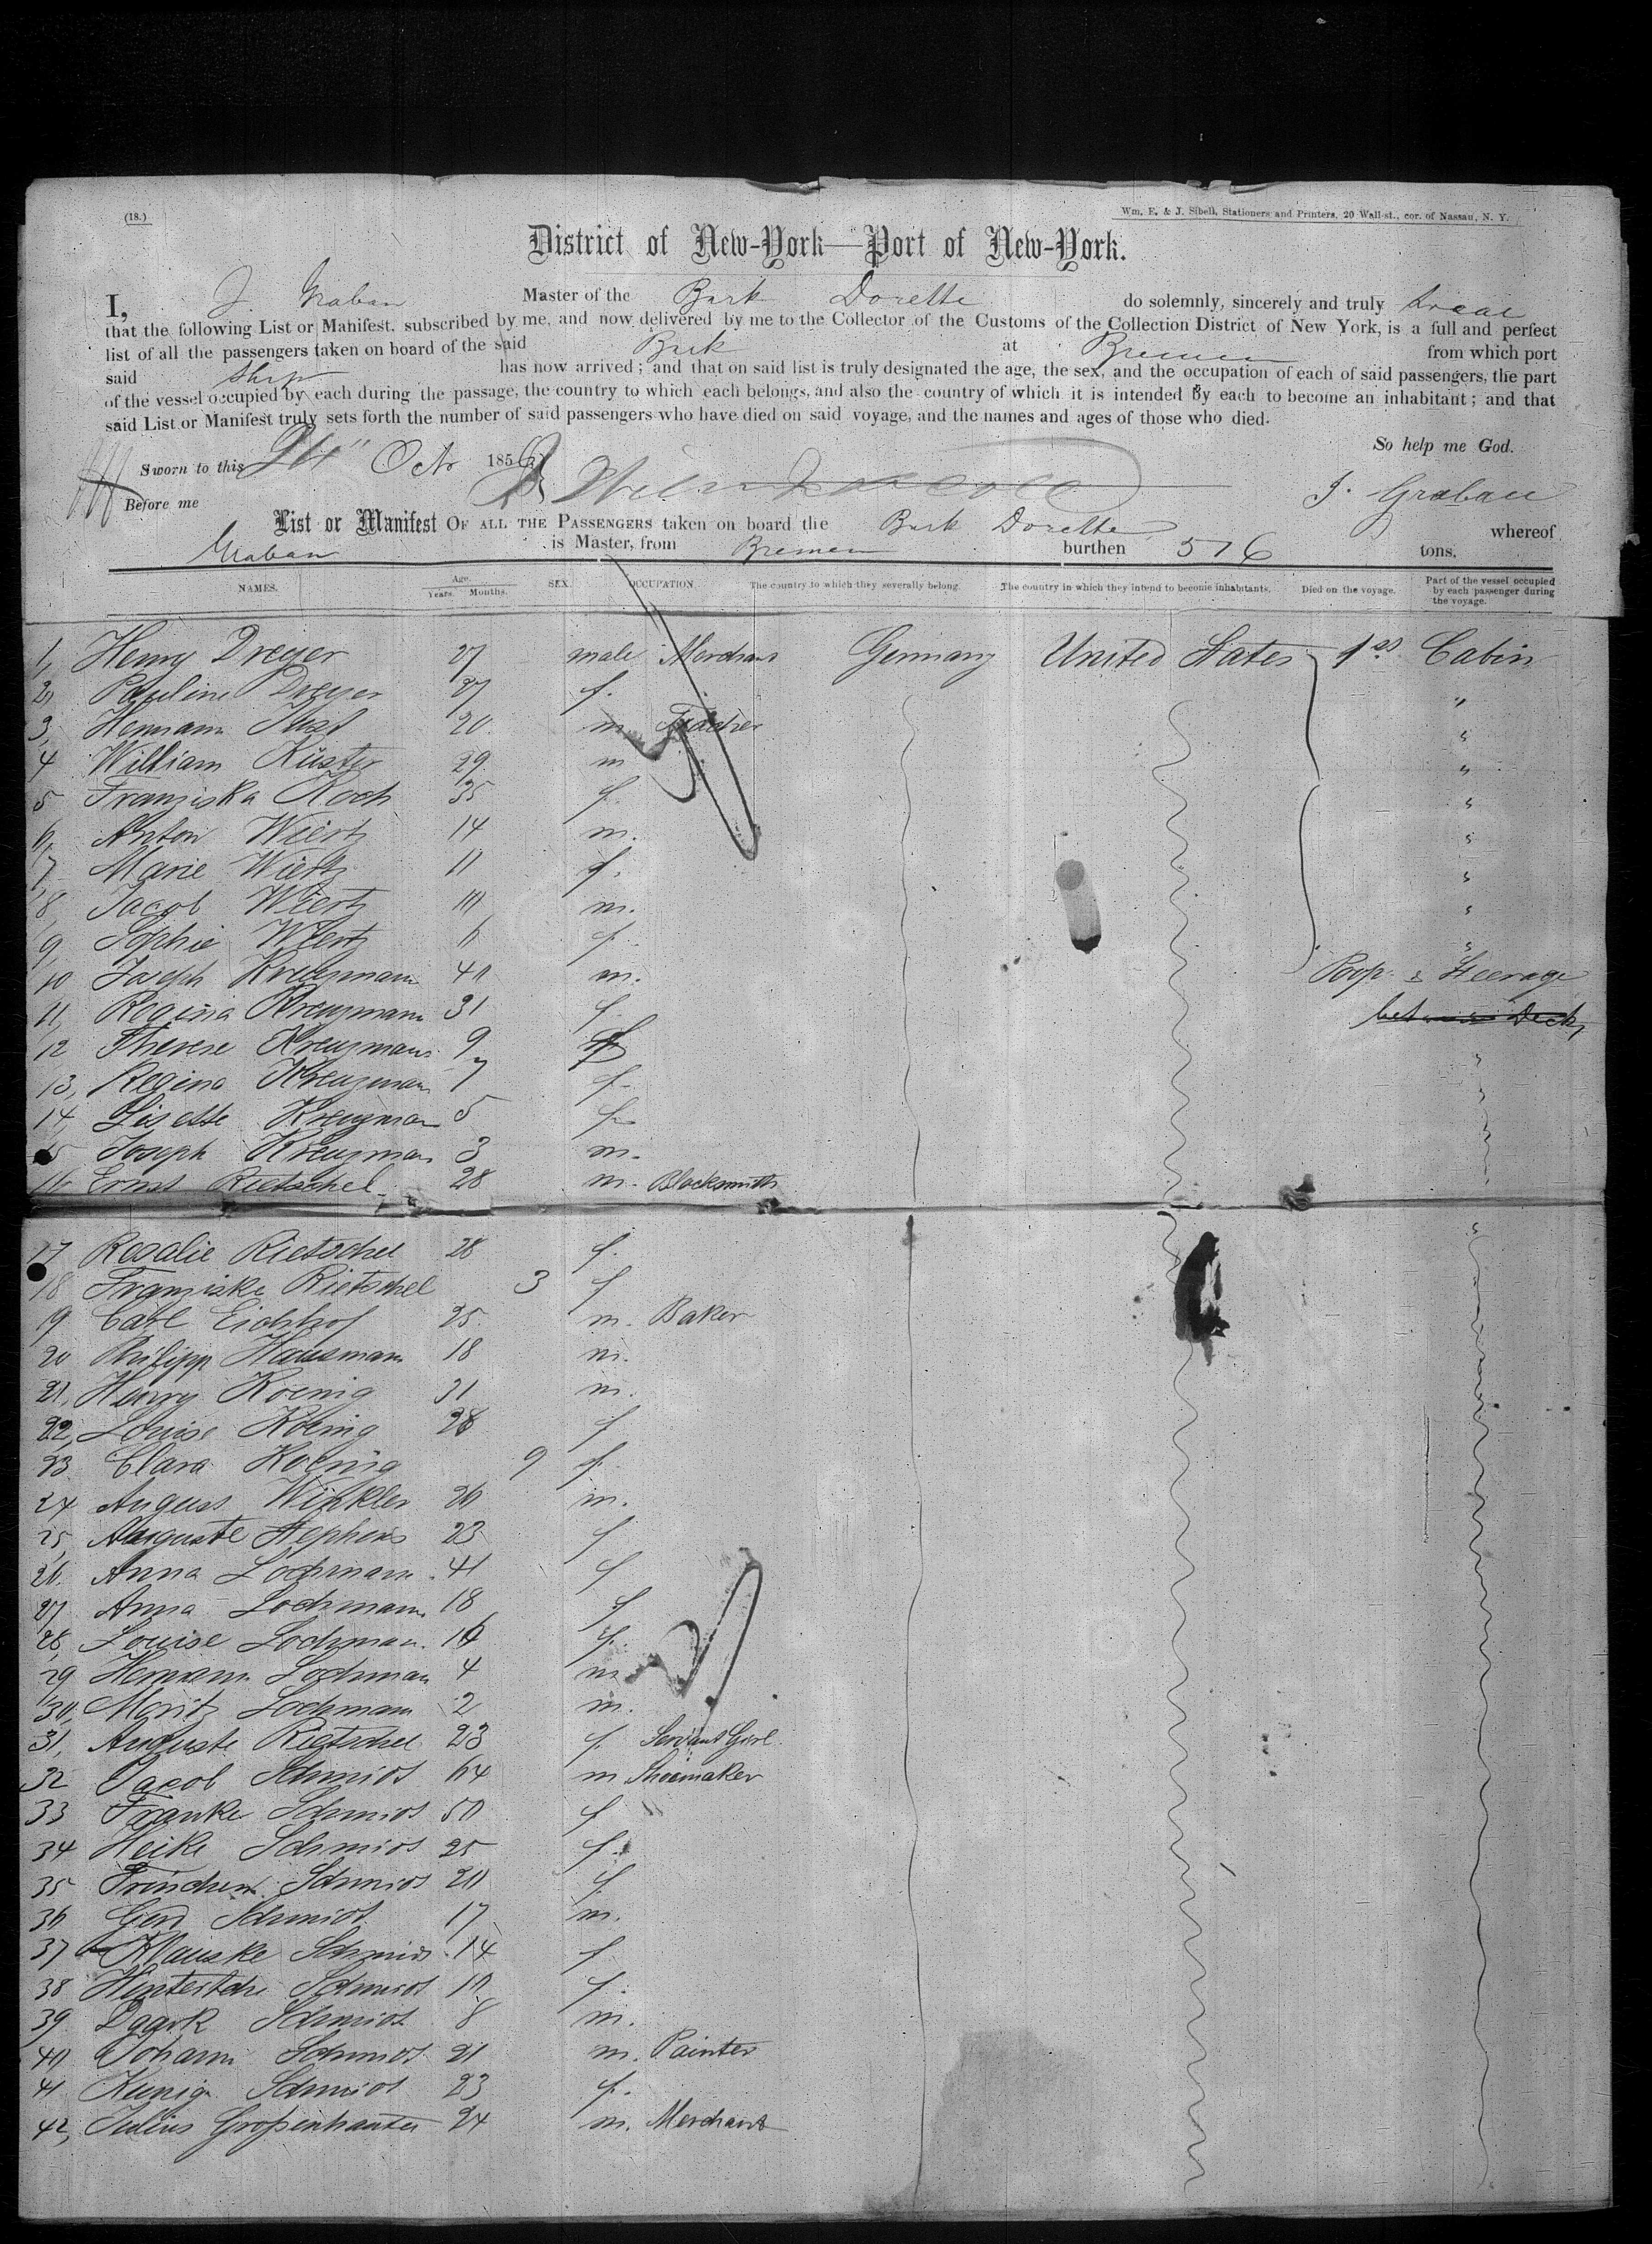 (18.)
Wm. E. & J. Sibell, Stationers and Printers, 20 Wall-st., cor. of Nassau, N. Y.
District of New-York—Port of New-York.
I, J. Graban Master of the Bark Dorette do solemnly, sincerely and truly swear
that the following List or Manifest, subscribed by me, and now delivered by me to the Collector of the Customs of the Collection District of New York, is a full and perfect
list of all the passengers taken on board of the said Bark at Bremen from which port
said Ship has now arrived; and that on said list is truly designated the age, the sex, and the occupation of each of said passengers, the part
of the vessel occupied by each during the passage, the country to which each belongs, and also the country of which it is intended by each to become an inhabitant; and that
said List or Manifest truly sets forth the number of said passengers who have died on said voyage, and the names and ages of those who died.
So help me God.
Sworn to this Oct 185
Before me
J. Graban
List or Manifest OF ALL THE PASSENGERS taken on board the Bark Dorette whereof
Graban is Master, from Bremen burthen 516 tons.
NAMES. Age. Years. Months. SEX. OCCUPATION. The country to which they severally belong. The country in which they intend to become inhabitants. Died on the voyage. Part of the vessel occupied by each passenger during the voyage.
1, Henry Dreyer 27 male Merchant Germany United States 1st Cabin
2, Pauline Dreyer 27 f. "
3, Hermann Just 20 m Teacher "
4 William Küster 29 m "
5 Franziska Koch 35 f. "
6, Anton Wiertz 14 m. "
7, Marie Wiertz 11 f. "
8, Jacob Wiertz 10 m. "
9, Sophie Wiertz 6 f. "
10 Joseph Kreuzmann 40 m. Poop & Steerage
11, Regina Kreuzmann 31 f. between Deck,
12 Therese Kreuzmann 9 f "
13, Regina Kreuzmann 7 f. "
14, Lisette Kreuzman 5 f. "
15 Joseph Kreuzman 3 m. "
16 Ernst Rietschel 28 m. Blacksmith
17 Rosalie Rietschel 28 f. "
18 Franziska Rietschel 3 f
19 Carl Eichhof 25 m. Baker
20 Philipp Hausmann 18 m.
21, Henry Koenig 31 m.
22, Louise Koenig 28 f
23 Clara Koenig 9 f.
24 August Winkler 26 m.
25, Auguste Stephens 23 f
26. Anna Lochmann 41 f
27, Anna Lochmann 18 f
28, Louise Lochman. 14 f.
29 Hermann Lochman 4 m
30, Moritz Lochmann 2 m.
31, Auguste Rietschel 23 f. Servant Girl
32 Jacob Schmidt 64 m Shoemaker
33 Frauke Schmidt 50 f
34 Heike Schmidt 25 f.
35 Trinchen Schmidt 20 f.
36 Gerd Schmidt 17 m.
37 Schmidt 14 f
38 Schmidt 10 f.
39 Schmidt 8 m.
40 Johann Schmidt 21 m. Painter
41 Kunig. Schmidt 23 f.
42, Julius Großenhauter 24 m. Merchant